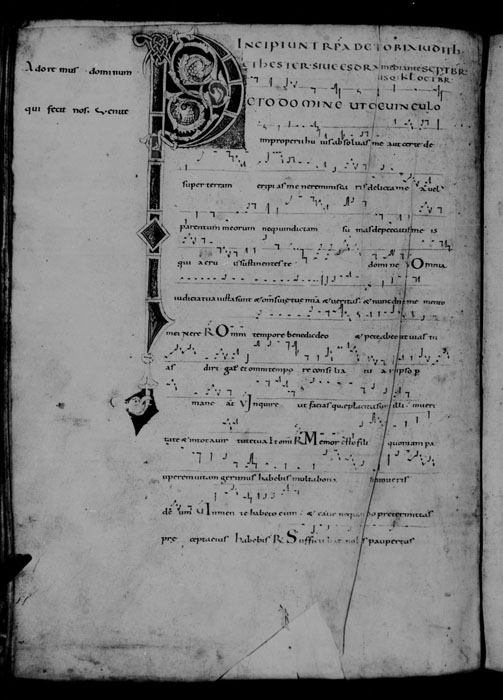 Adoremus dominum
qui fecit nos. Venite
INCIPIUNT R DE TOBIA IUDITH
ET HESTER SIVE ESDRA mediante SEPTBR
usq KL OCTBR
PETO DOMINE UT DE VINCULO
improperii hu ius absolvas me aut certe de
super terram eripias me ne reminisca ris delicta mea vel
parentum meorum neque vindictam sumas de peccatis me is
qui a eru is sustinentes te domine V Omnia
iudicia tua iusta sunt & omnes viae tuae mia & veritas & nunc dne memento
mei Ne re R Omni tempore benedic deo & pete ab eo ut vias tu
as diri gat & omni tempo re consi lia tu a ipso p
mane ant V Inquire ut facias quae placita sunt illi in veri
tate & in tota vir tute tua Et omi R Memor esto fili quoniam pau
perem vitam gerimus habebis multa bona si timueris
dm V In men te habeto eum & cave nequando pretermittas
prae cepta eius habebis R Suffici ebat nobis paupertas